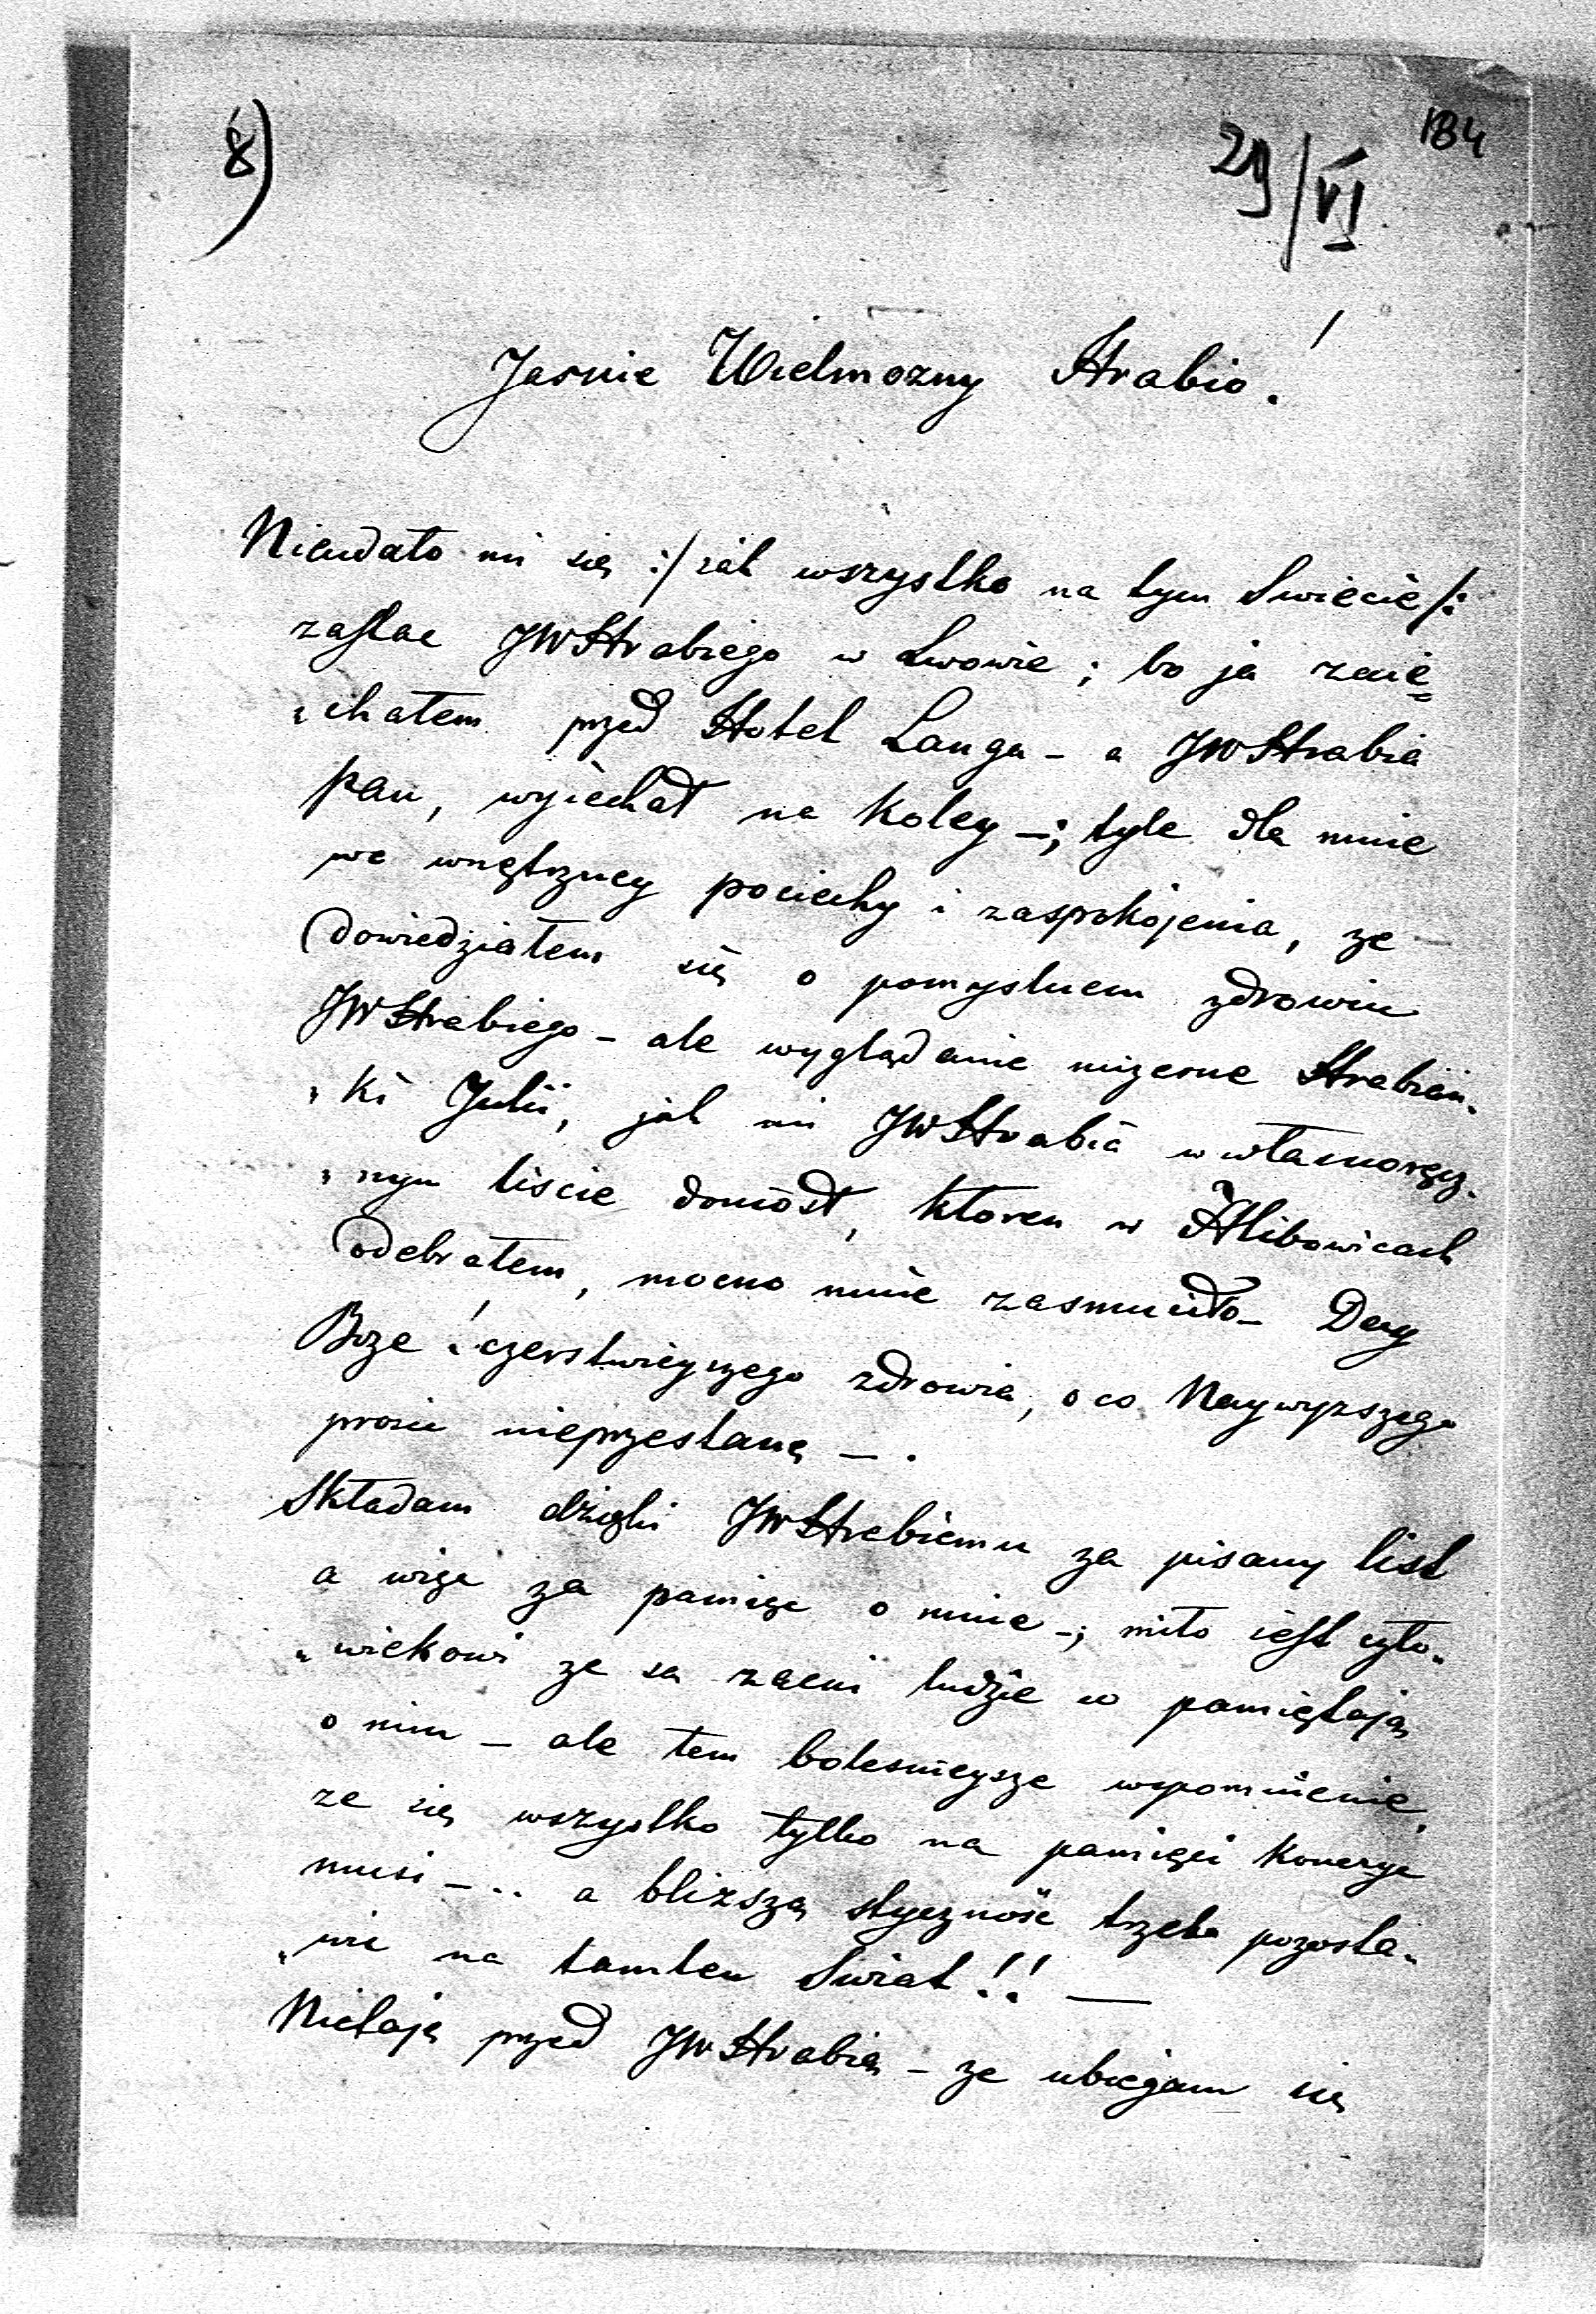 8)
184
29/VI
Jasnie Wielmozny Hrabio!
Nieudało mi się :/ jak wszystko na tym Swiecie /:
zastac JWHrabiego w Lwowie; bo ja zaie
"chałem przed Hotel Langa - a JWHrabia
pan, wyiechał na Koley -; tyle dla mnie
we wnętrzney pociechy i zaspokojenia, ze
dowiedziałem się o pomyslnem zdrowiu
JWHrabiego - ale wyglądanie mizerne Hrabian-
"ki Julii, jak mi JWHrabia w własnoręcz-
"nym liscie doniósł, ktoren w Hlibowicach
odebrałem, mocno mnie zasmuciło - Day
Boze! czerstwieyszego zdrowia, o co Naywyzszego
prosic nieprzestanę - .
Składam dzięki JWHrabiemu za pisany list
a więc za pamięc o mnie -; miło iest czło-
"wiekowi ze są zacni ludzie co pamiętają
o nim - ale tem bolesnieysze wspomnienie,
ze się wszystko tylko na pamięci konczyc
musi - .. a blizszą stycznośc trzeba pozosta-
"wic na tamten Swiat!! —
Nietaję przed JWHrabią - ze ubiegam się